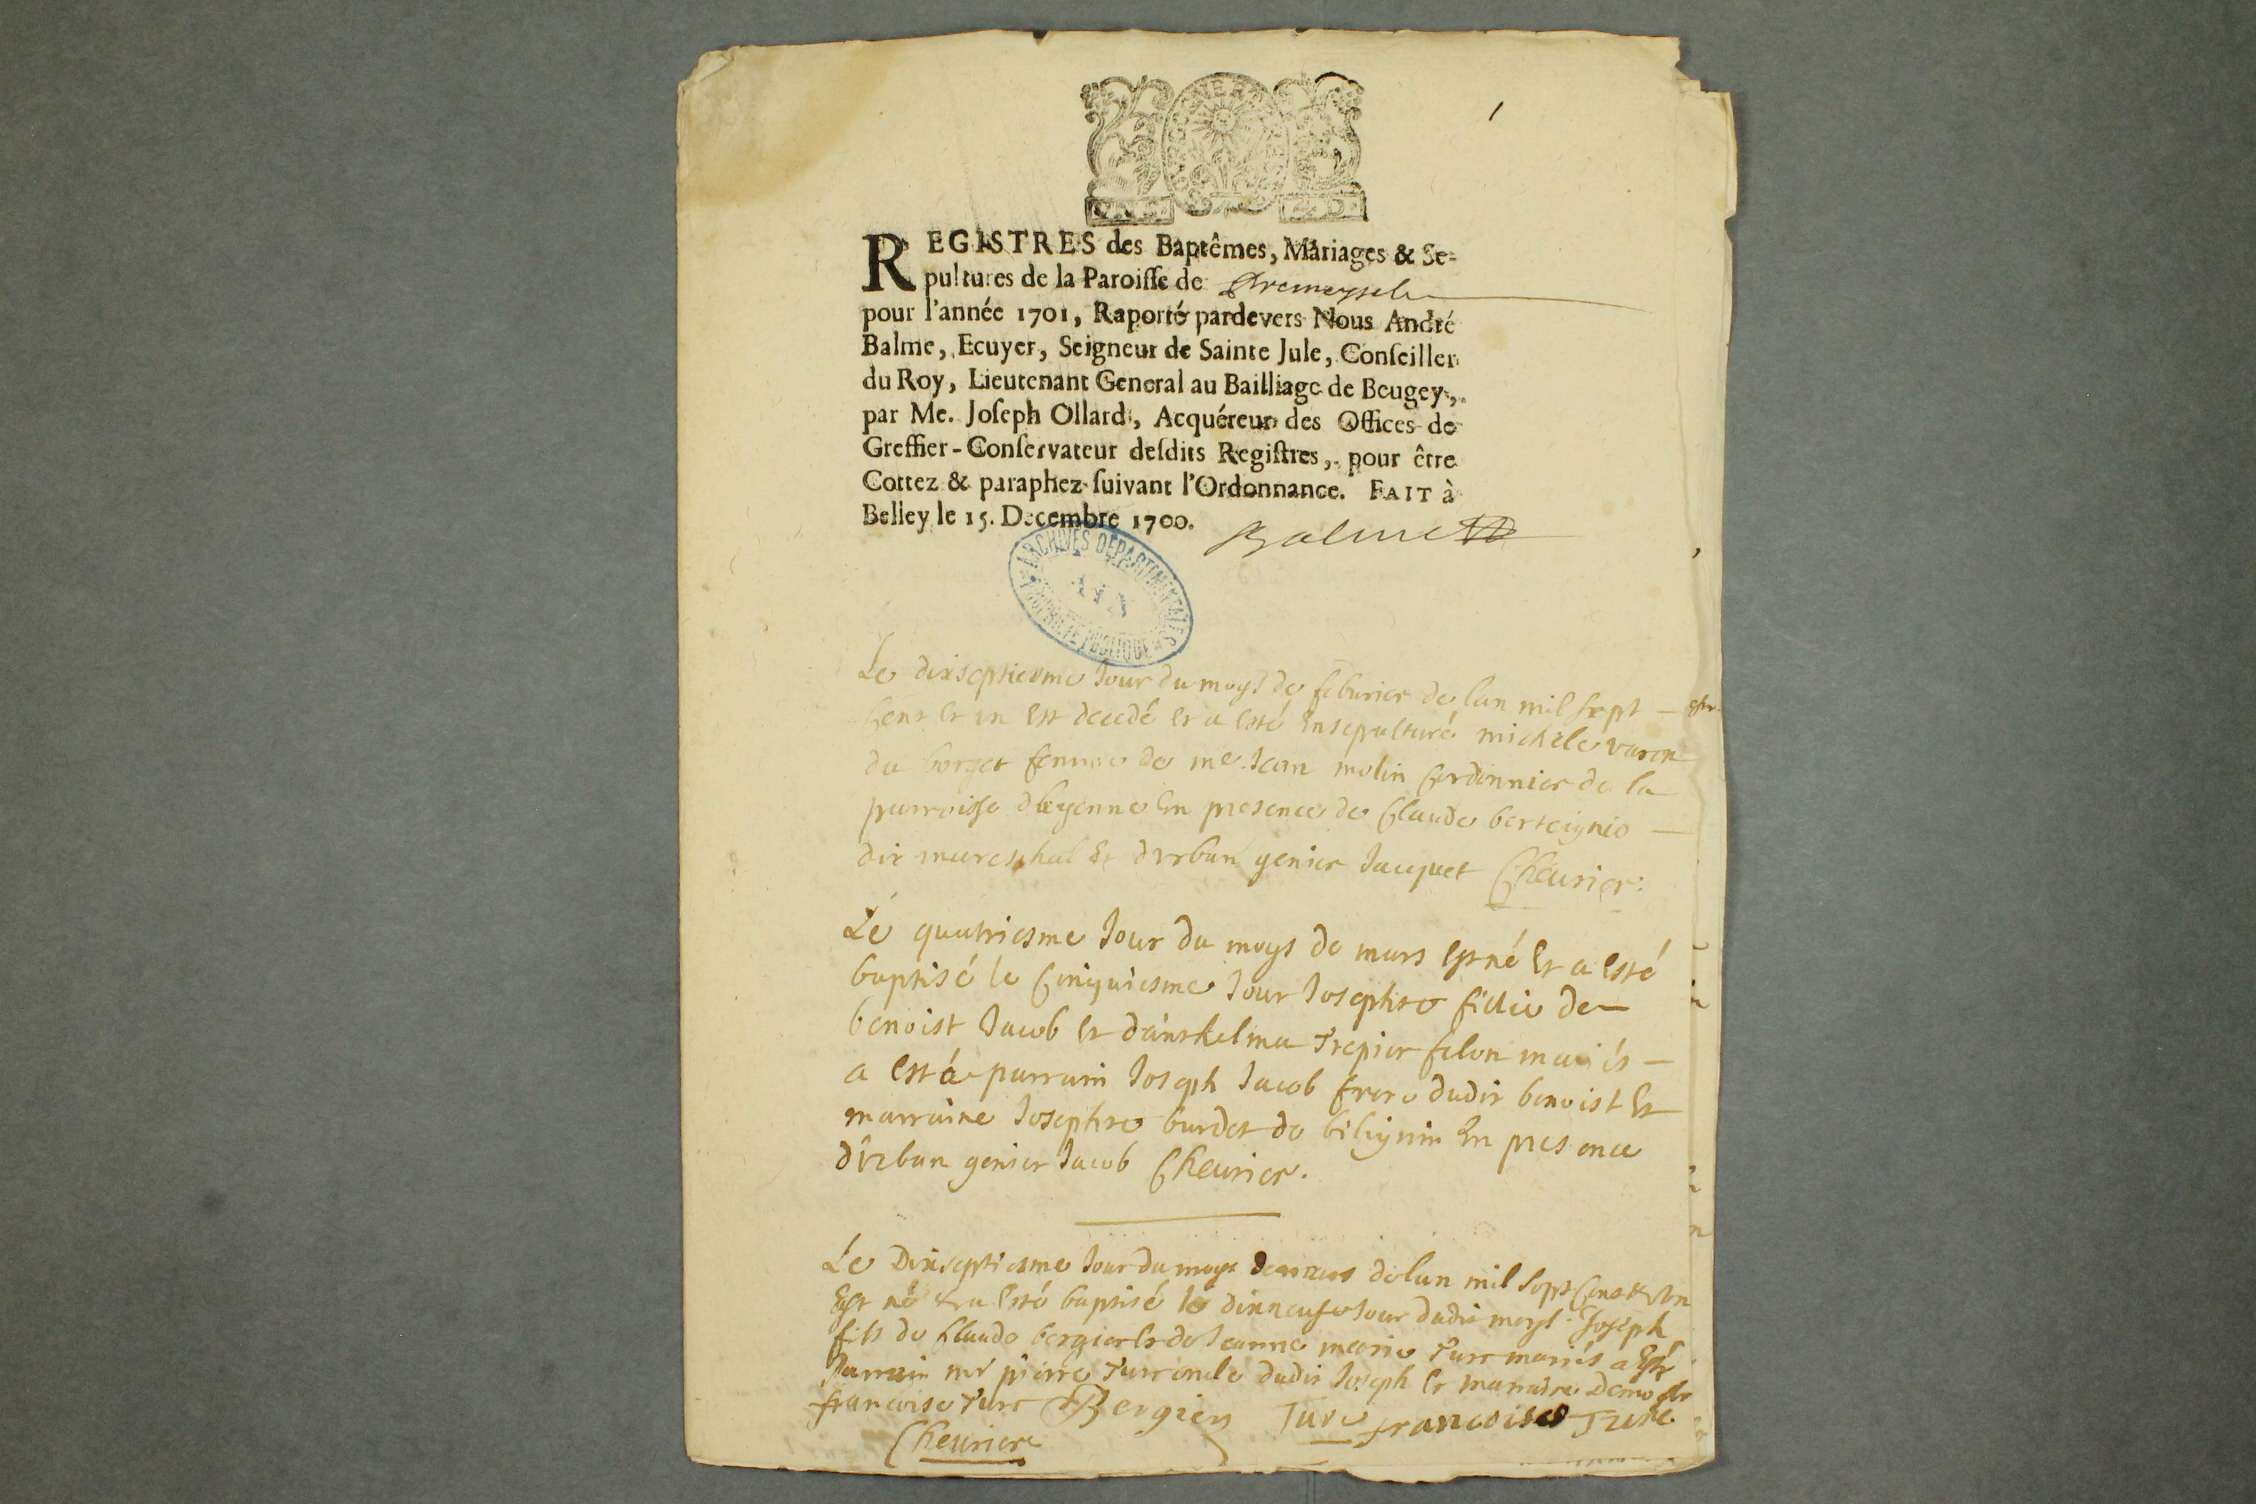 1
REGISTRES des Baptêmes, Mariages & Se-
pultures de la Paroisse de Premeysel
pour l'année 1701, Raporté pardevers Nous André
Balme, Ecuyer, Seigneur de Sainte Jule, Conseiller
du Roy, Lieutenant General au Bailliage de Beugey,
par Me. Joseph Ollard, Acquéreur des Offices de
Greffier-Conservateur desdits Registres, pour être
Cottez & paraphez suivant l'Ordonnance. FAIT à
Belley le 15. Decembre 1700.
Balme
ARCHIVES DEPARTEMENTALES
AIN
PROPRIETE PUBLIQUE
Le dixseptiesme Jour du moys de feburier de lan mil sept
Cent et un est decedé et a esté Ensepulturé michele varon
du borget femme de me Jean molin Cordonnier de la
parroisse dyenne En presence de Claude berteignio
dit mareschal et durban genier Jacquet Cheurier.
Le quatriesme Jour du moys de mars est né Et a esté
baptisé le Cinquiesme Jour Josephte fillie de
benoist Jacob et danthelma trepier felon mariés
a esté parrain Joseph Jacob frere dudit benoist Et
marraine Josephte burdet de bilignin En presence
durban genier Jacob Cheurier.
Le Dixseptiesme Jour du moys de mars de lan mil Sept Cent et Un
Est né et a esté baptisé le dixneufe Jour dudit moys Joseph
fils de Claude bergier et de Jeanne marie Turc mariés a Esté
Parrain mr pierre Turc oncle dudit Joseph et marraine Demole
francoise Turc Bergier Turc francoise Turc
Cheurier